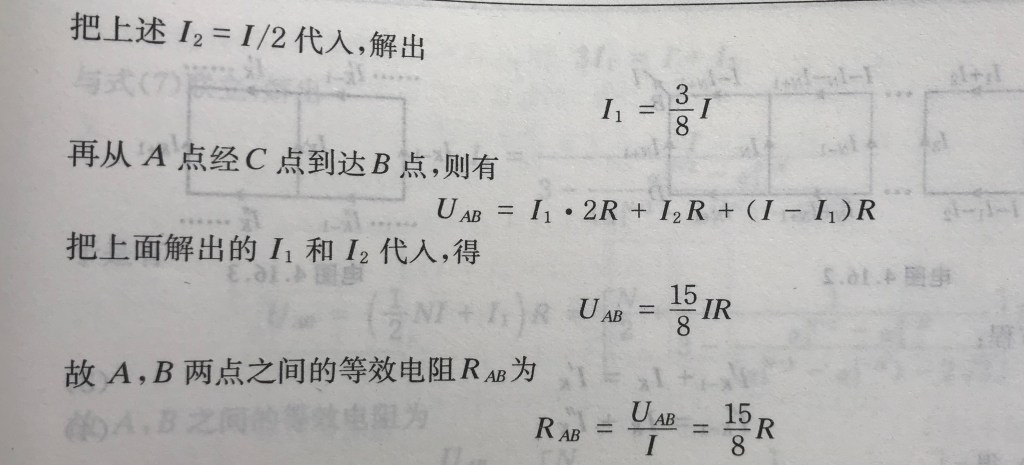 把上述 I₂ = I/2 代入,解出
I₁ = 3/8 I
再从 A 点经 C 点到达 B 点,则有
U_AB = I₁ · 2R + I₂R + (I − I₁)R
把上面解出的 I₁ 和 I₂ 代入,得
U_AB = 15/8 IR
故 A,B 两点之间的等效电阻 R_AB 为
R_AB = U_AB/I = 15/8 R